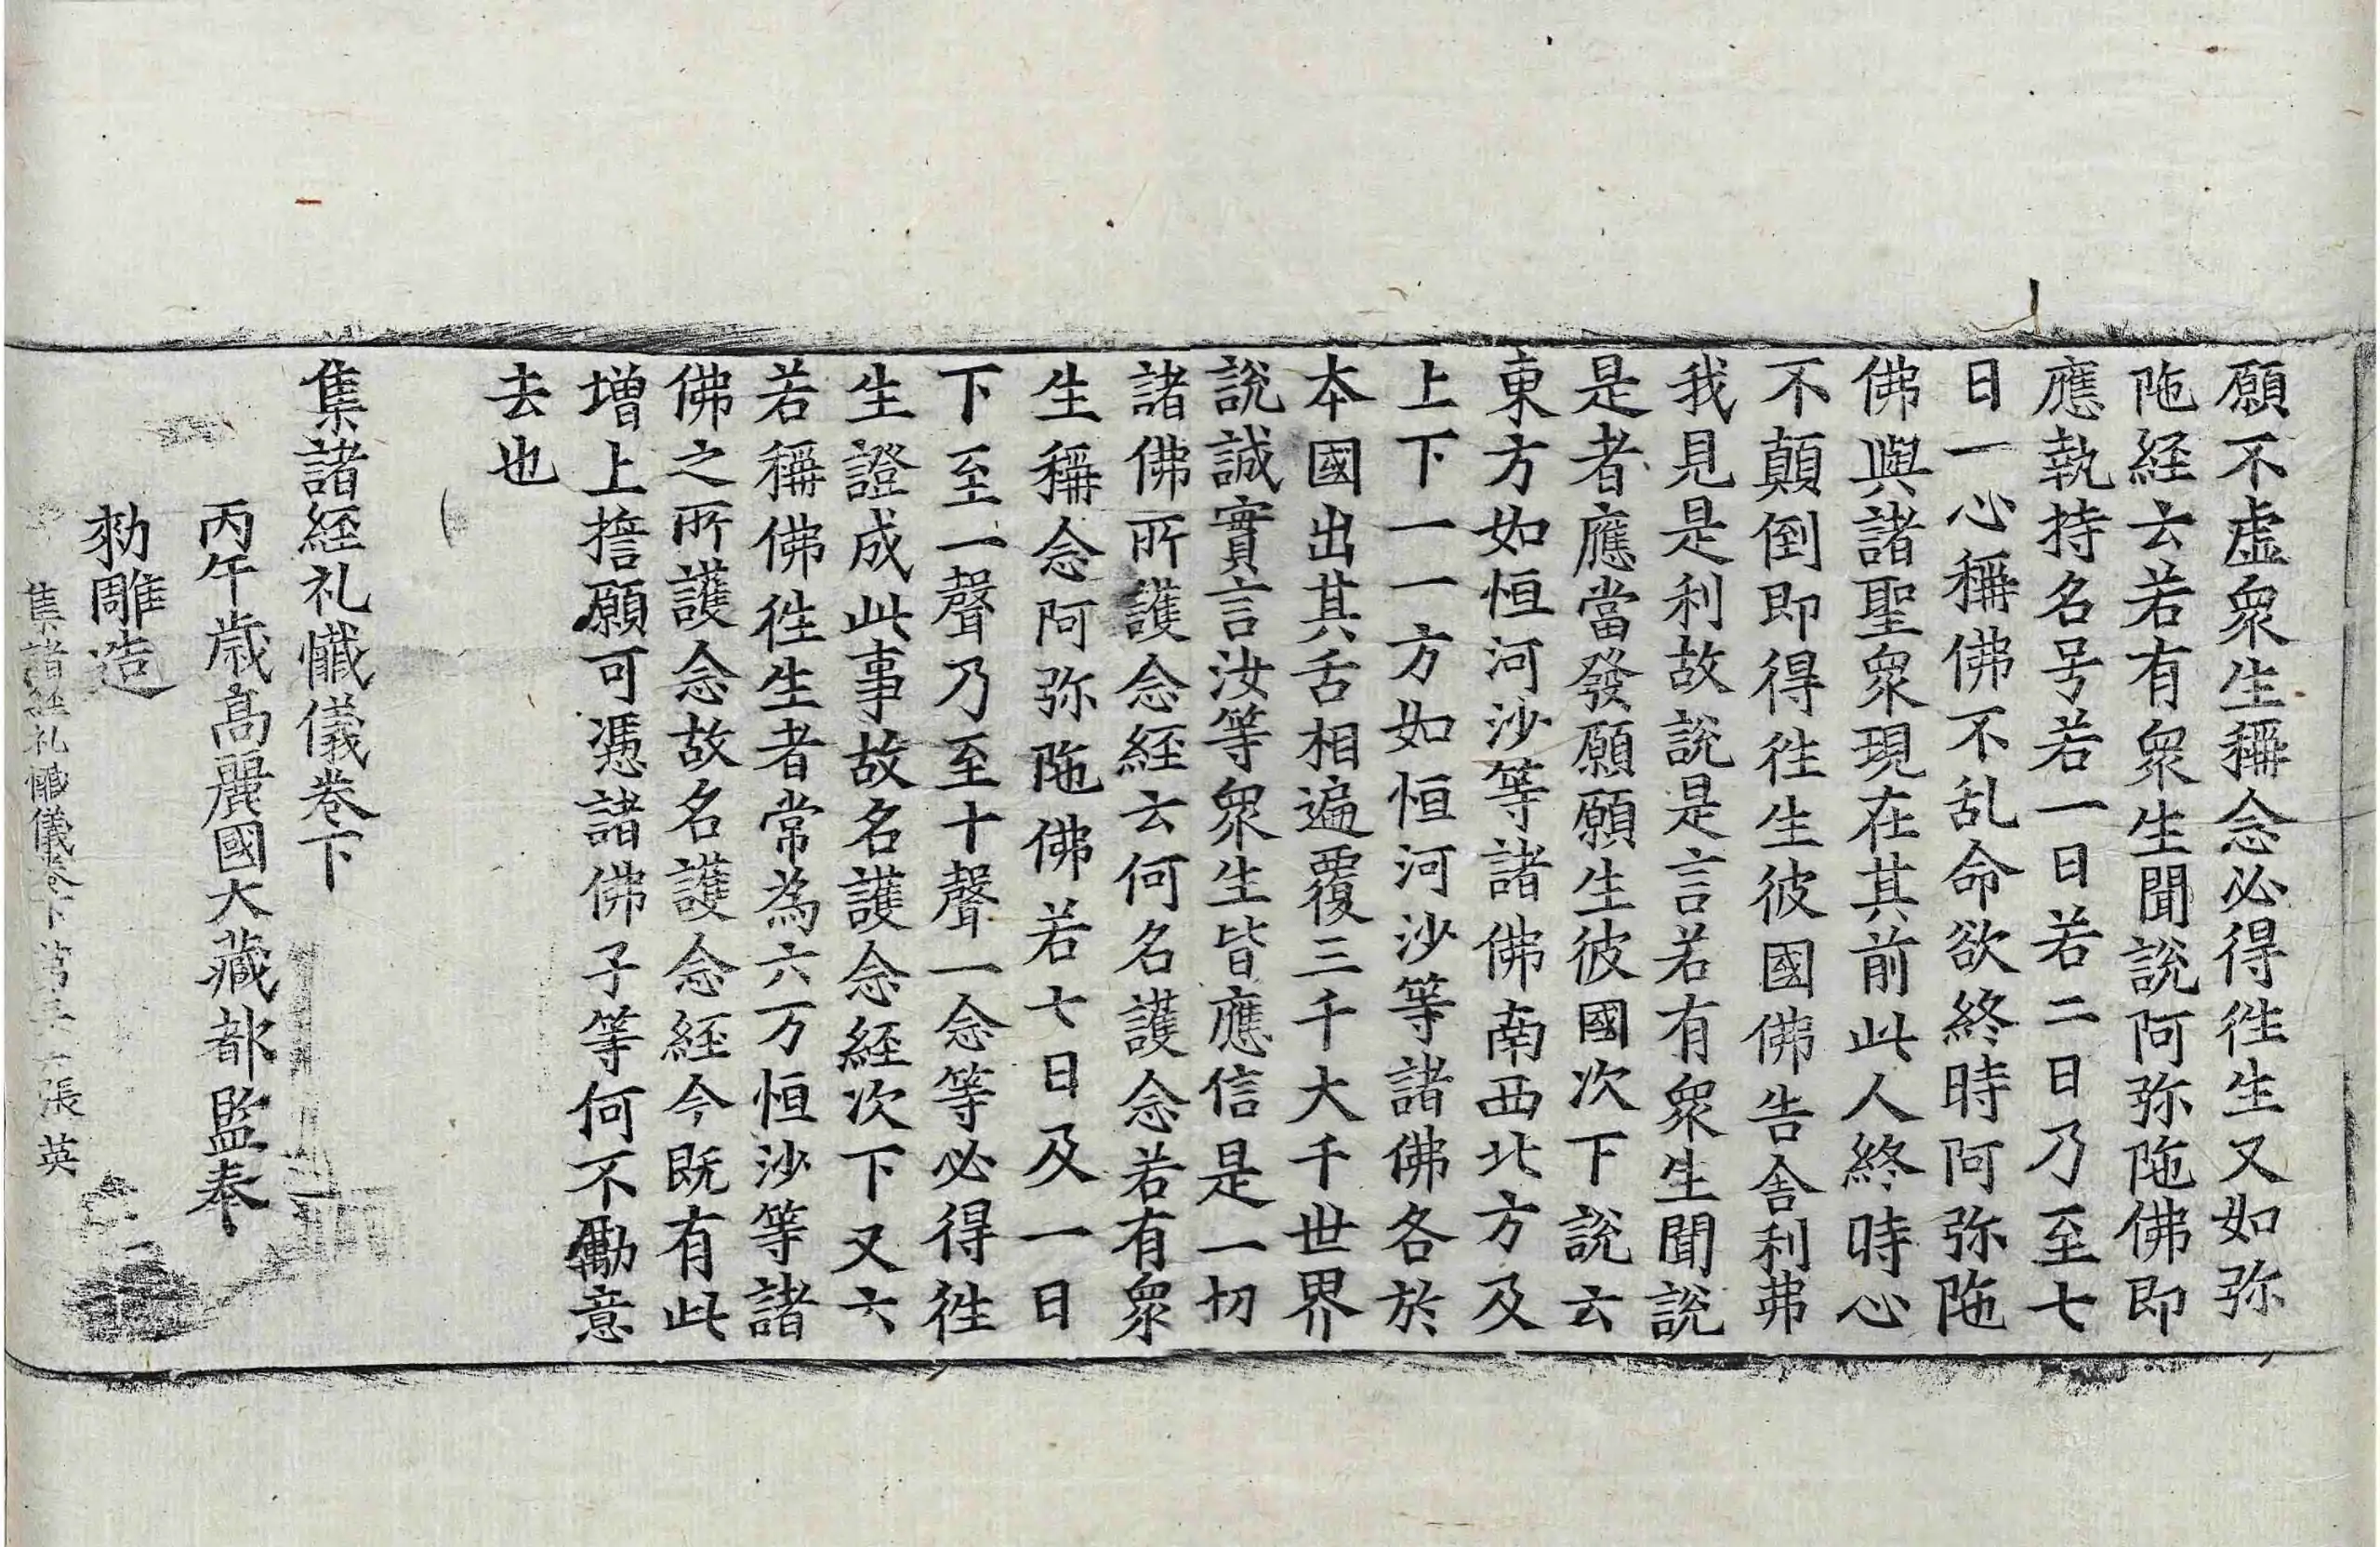 願不虛衆生稱念必得徃生又如弥
陁経云若有衆生聞說阿弥陁佛即
應執持名号若一日若二日乃至七
日一心稱佛不乱命欲終時阿弥陁
佛與諸聖衆現在其前此人終時心
不顛倒即得徃生彼國佛告舍利弗
我見是利故說是言若有衆生聞說
是者應當發願願生彼國次下說云
東方如恒河沙等諸佛南西北方及
上下一一方如恒河沙等諸佛各於
本國出其舌相遍覆三千大千世界
說誠實言汝等衆生皆應信是一切
諸佛所護念経云何名護念若有衆
生稱念阿弥陁佛若七日及一日
下至一聲乃至十聲一念等必得徃
生證成此事故名護念経次下又六
若稱佛徃生者常為六万恒沙等諸
佛之所護念故名護念経今既有此
增上擔願可憑諸佛子等何不勵意
去也
集諸経礼懺儀卷下
丙午歲髙麗國大藏都監奉
勑雕造
集諸経礼懺儀卷下第 張 英